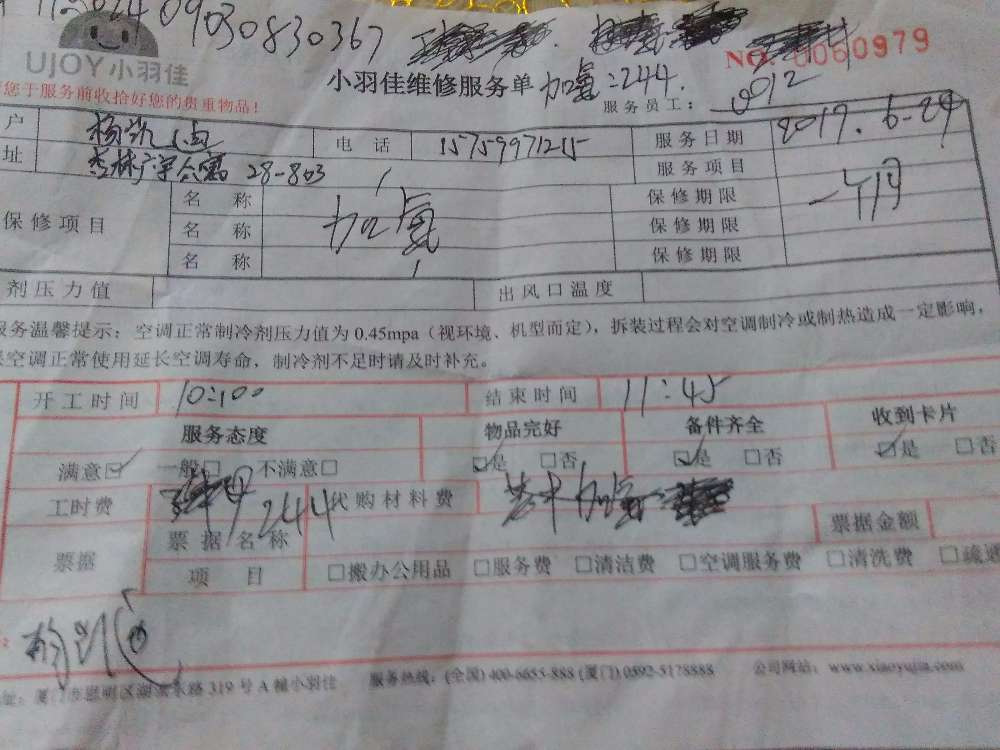 09030830367
UJOY小羽佳 NO. 0060979
您于服务前收拾好您的贵重物品！
小羽佳维修服务单 加氟:244.
服务员工： 0012
户 电话 15759971215 服务日期 2017.6-24
址 杏林 公寓 28-803 服务项目
保修项目 名称 加氟 保修期限
名称 保修期限
名称 保修期限
剂压力值 出风口温度
服务温馨提示：空调正常制冷剂压力值为0.45mpa（视环境、机型而定），拆装过程会对空调制冷或制热造成一定影响，
空调正常使用延长空调寿命，制冷剂不足时请及时补充。
开工时间 10:00 结束时间 11:45
服务态度 物品完好 备件齐全 收到卡片
满意☑ 一般□ 不满意□ ☑是 □否 ☑是 □否 ☑是 □否
工时费 244 代购材料费 加氟
票据 票据名称 票据金额
项目 □搬办公用品 □服务费 □清洁费 □空调服务费 □清洗费 □疏通
址：厦门市思明区湖滨水路319号A幢小羽佳 服务热线：(全国) 400-6655-888 (厦门) 0592-5178888 公司网站：www.xiaoyujia.com